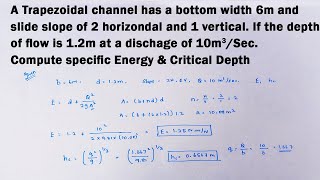 A Trapezoidal channel has a bottom width 6m and
slide slope of 2 horizondal and 1 vertical. If the depth
of flow is 1.2m at a dischage of 10m³/Sec.
Compute specific Energy & Critical Depth
b = 6m. d = 1.2m. Slope 2H, 1V. Q = 10 m³/sec. E, hc
E = d + Q²/2gA² A = (b+nd)d n = 2/1 = 2
A = (6+(2×1.2))1.2
E = 1.2 + 10²/2×9.81×(10.08)² E = 1.25 m
hc = (q²/g)^1/3 = (1.667²/9.81)^1/3 hc = 0.6567 m q = Q/b = 10/6 = 1.667